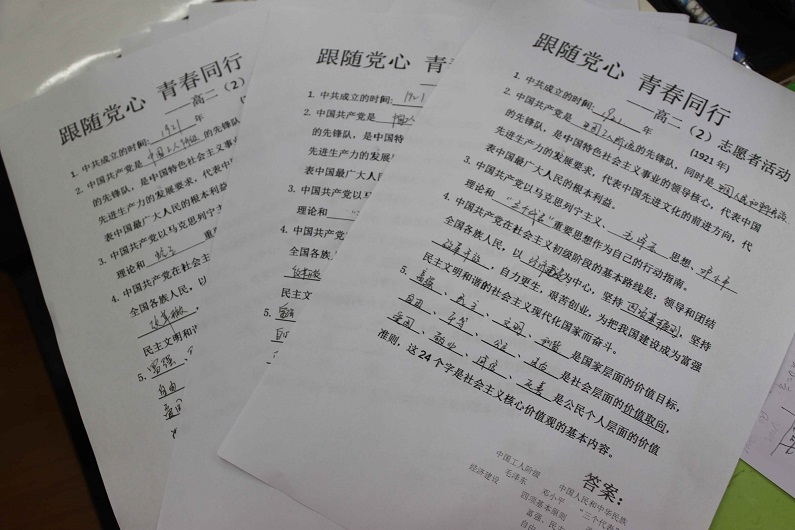 跟随党心 青春同行
1. 中共成立的时间: 1921 年
2. 中国共产党是 中国工人阶级 的先锋
的先锋队，是中国特色社会主义事
先进生产力的发展要求，代表中
表中国最广大人民的根本利益
3. 中国共产党以马克思列宁主
理论和
4. 中国共产党在社会主
全国各族人民，以
改革开放
民主文明和谐
5. 富强
自由
爱国
跟随党心 青
1. 中共成立的时间: 1921
2. 中国共产党是 中国工人
的先锋队，是中国特
先进生产力的发展
表中国最广大人民
3. 中国共产党
理论和
4. 中国共产
全国各族
民主文
5. 富强
跟随党心 青春同行
——高二（2）志愿者活动
1. 中共成立的时间: 1921 年 (1921 年)
2. 中国共产党是 中国工人阶级 的先锋队，同时是 中国人民和中华民族
的先锋队，是中国特色社会主义事业的领导核心，代表中国
先进生产力的发展要求，代表中国先进文化的前进方向，代
表中国最广大人民的根本利益。
3. 中国共产党以马克思列宁主义、毛泽东 思想、邓小平
理论和 “三个代表” 重要思想作为自己的行动指南。
4. 中国共产党在社会主义初级阶段的基本路线是：领导和团结
全国各族人民，以 经济建设 为中心，坚持 四项基本原则，坚持
改革开放，自力更生，艰苦创业，为把我国建设成为富强
民主文明和谐的社会主义现代化国家而奋斗。
5. 富强、民主、文明、和谐 是国家层面的价值目标，
自由、平等、公正、法治 是社会层面的价值取向，
爱国、敬业、诚信、友善 是公民个人层面的价值
准则，这 24 个字是社会主义核心价值观的基本内容。
答案：
中国工人阶级 中国人民和中华民族
毛泽东 邓小平 “三个代表”
经济建设 四项基本原则
富强、民主
自由